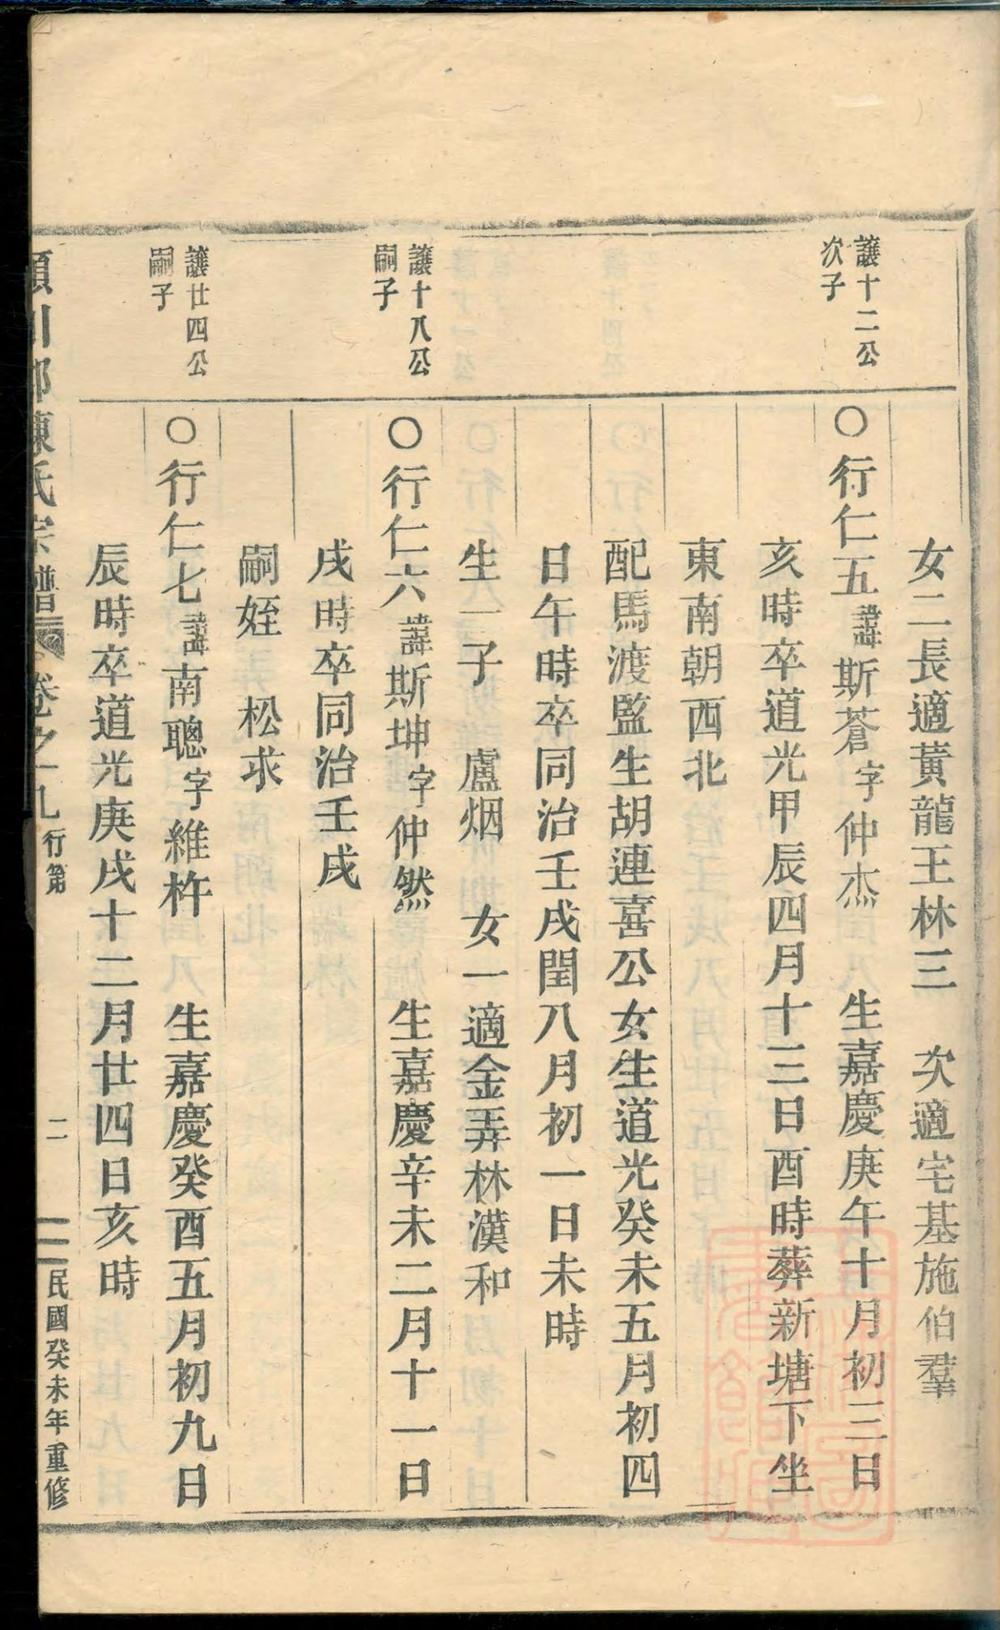 女二長適黃龍王林三　次適宅基施伯羣
讓十二公
次子
〇行仁五諱斯蒼字仲杰　生嘉慶庚午十月初三日
亥時卒道光甲辰四月十三日酉時葬新塘下坐
東南朝西北
配馬渡監生胡連喜公女生道光癸未五月初四
日午時卒同治壬戌閏八月初一日未時
生一子　盧烟　女一適金弄林漢和
讓十八公
嗣子
〇行仁六諱斯坤字仲然　生嘉慶辛未二月十一日
戌時卒同治壬戌
嗣姪　松求
讓廿四公
嗣子
〇行仁七諱南聰字維杵　生嘉慶癸酉五月初九日
辰時卒道光庚戌十二月廿四日亥時
潁川郡陳氏宗譜　卷之一九行第　二　民國癸未年重修